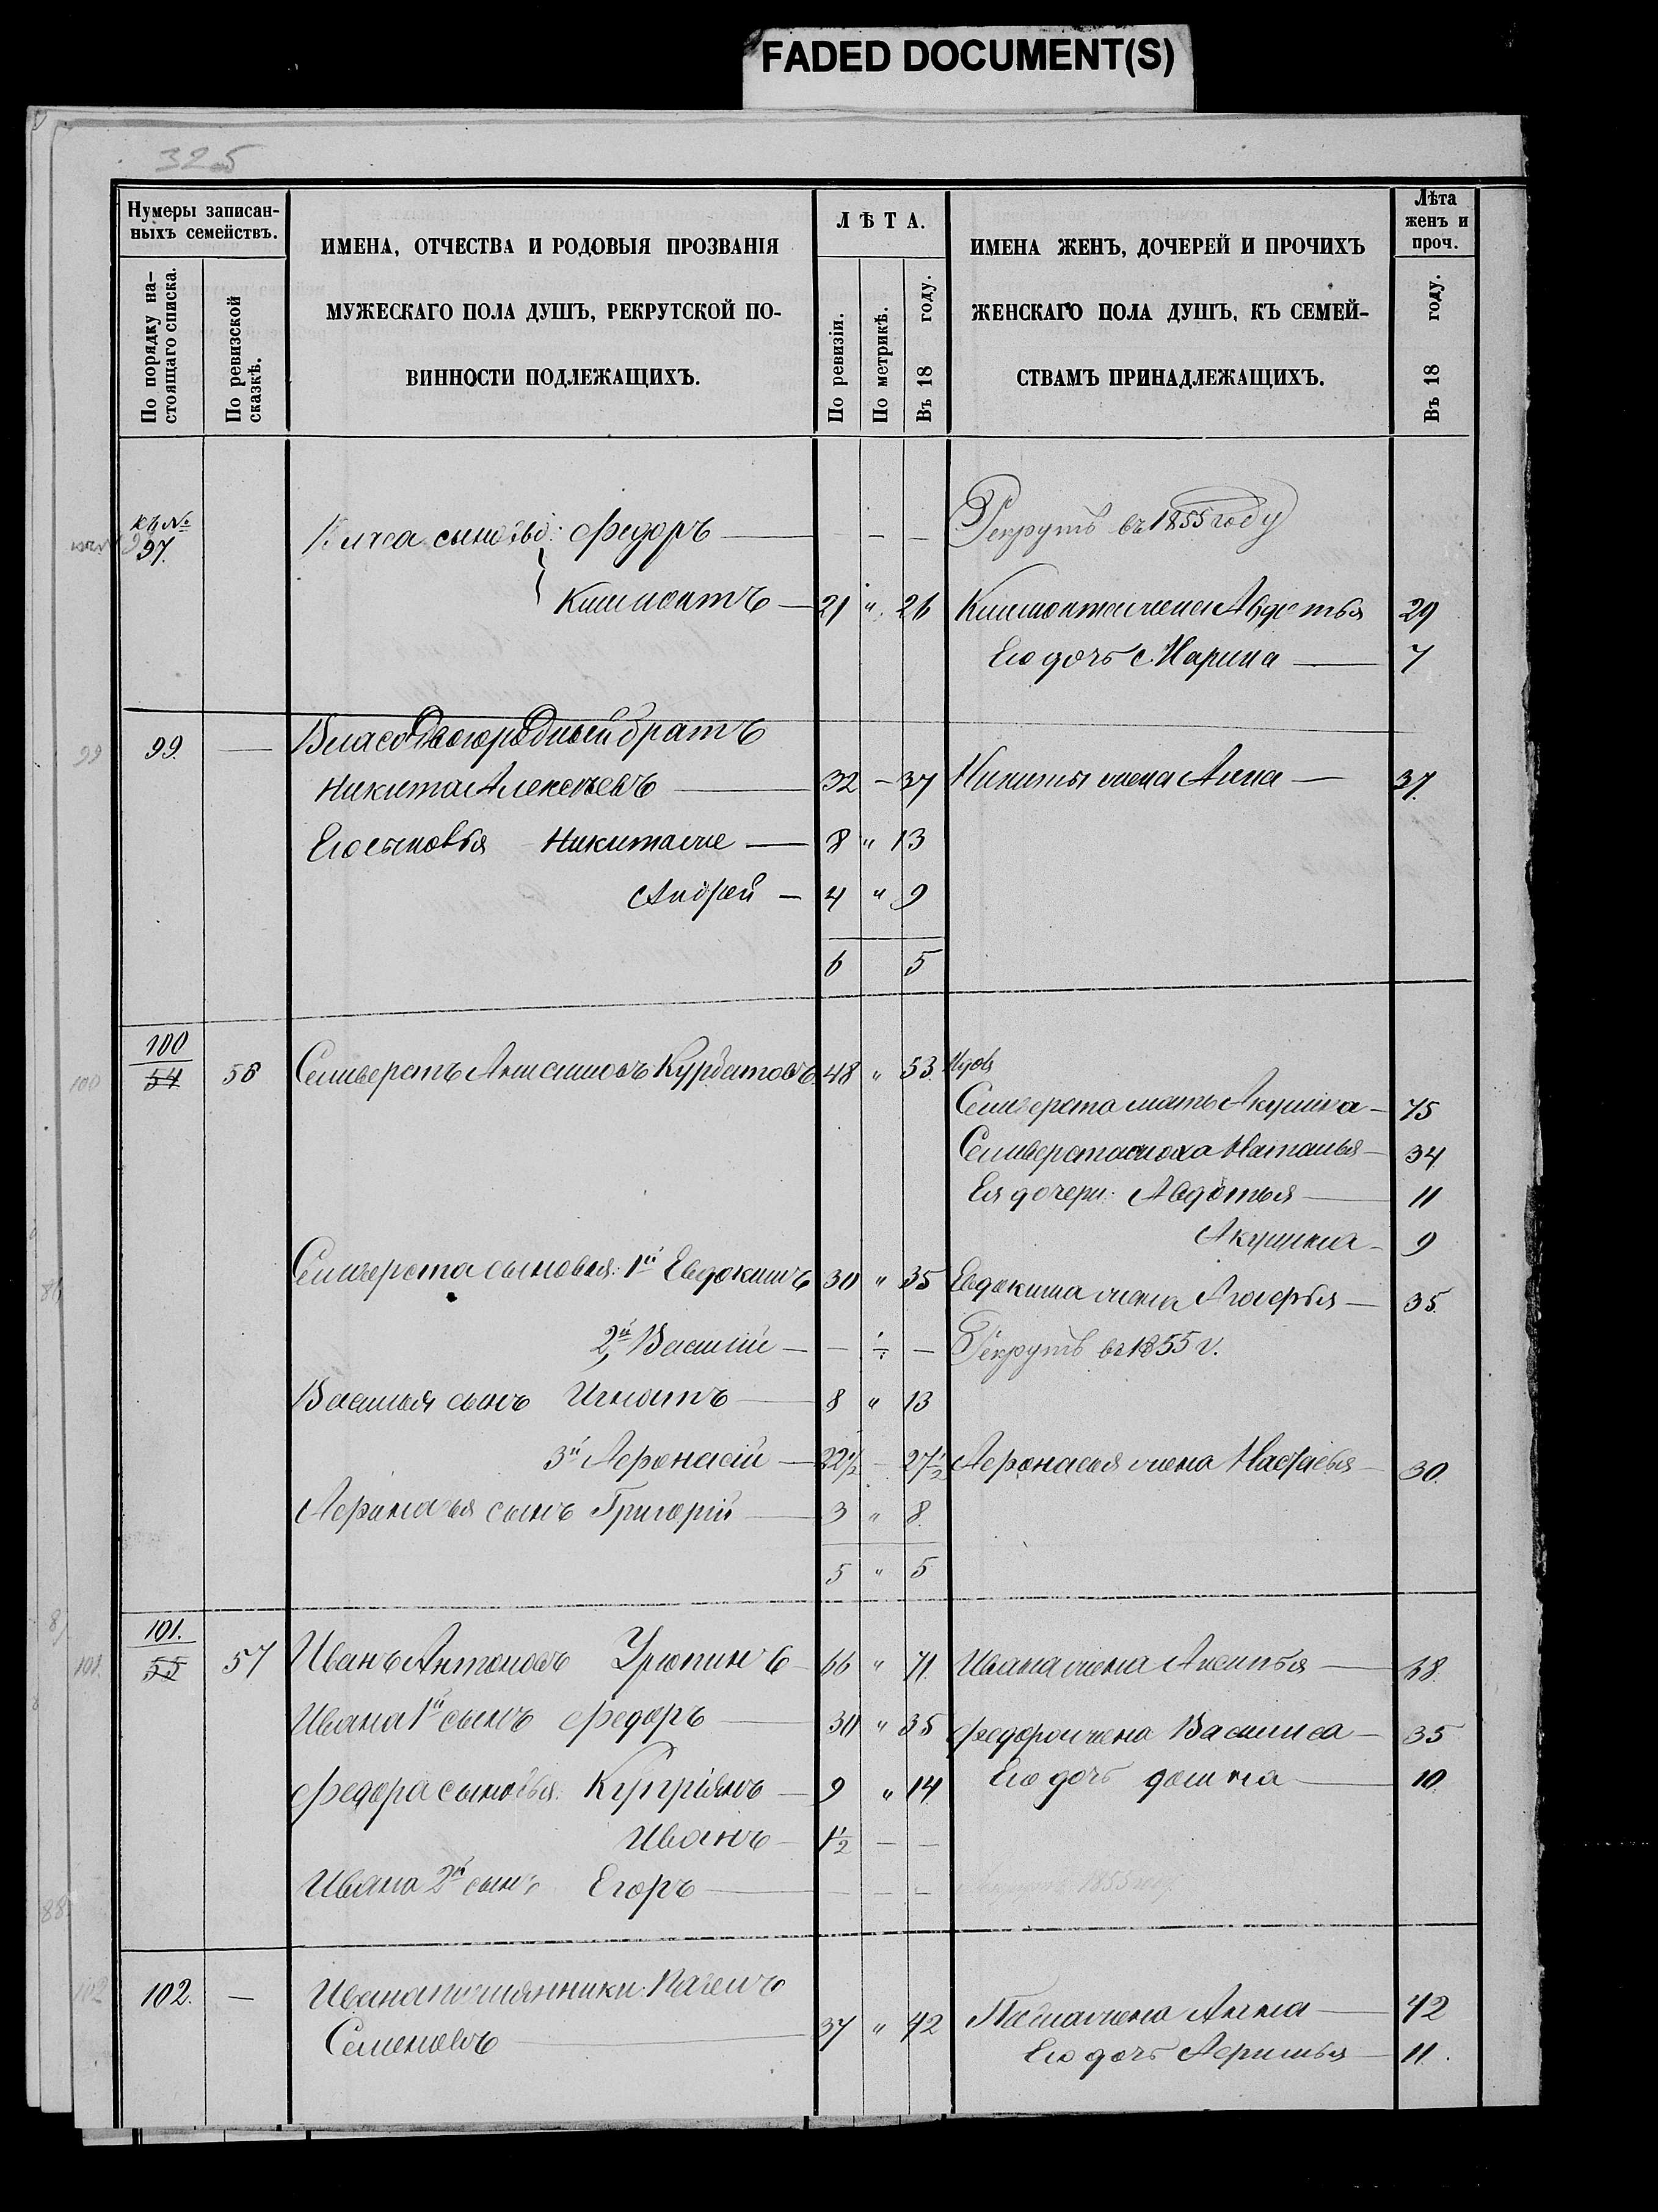 FADED DOCUMENT(S)
325
Нумеры записан-
ныхъ семействъ.
По порядку на-
стоящаго списка.
По ревизской
сказкѣ.
ИМЕНА, ОТЧЕСТВА И РОДОВЫЯ ПРОЗВАНІЯ
МУЖЕСКАГО ПОЛА ДУШЪ, РЕКРУТСКОЙ ПО-
ВИННОСТИ ПОДЛЕЖАЩИХЪ.
ЛѢТА.
По ревизіи.
По метрикѣ.
Въ 18 году.
ИМЕНА ЖЕНЪ, ДОЧЕРЕЙ И ПРОЧИХЪ
ЖЕНСКАГО ПОЛА ДУШЪ, КЪ СЕМЕЙ-
СТВАМЪ ПРИНАДЛЕЖАЩИХЪ.
Лѣта
женъ и
проч.
Въ 18 году.
къ №
97. Федоръ — — — Рекрутъ въ 1855 году
21 " 26 жена Авдотья 29
Его дочь Марина — 7
99 99. — Власа Двоюродный братъ
Никита Алексѣевъ — 32 — 37 Никиты жена Анна — 37.
Его сыновья — 8 " 13
Андрей — 4 " 9
6 5
100 100
54 56 Селиверстъ Анисимовъ Курбатовъ 48 " 53. Вдов
Селиверста мать Акулина — 75
Селиверста сноха Наталья — 34
Ея дочери: Авдотья — 11
Акулина — 9
Селиверста сыновья: 1й Евдокимъ 30 " 35 Евдокима жена — 35.
2й Василій — — ÷ — Рекрутъ въ 1855 г.
Василья сынъ Игнатъ — 8 " 13
3й Афонасій — 22½ - 27½ Афонасья жена Настасья — 30.
Афонасья сынъ Григорій — 3 " 8.
5 " 5
101. 101.
55 57 Иванъ Антоновъ Урюпинъ 66 " 71. Ивана жена Аксинья — 68.
Ивана 1й сынъ Федоръ — 30 " 35 Федора жена Василиса — 35
Федора сыновья: Купріянъ — 9 " 14 Его дочь Домна — 10.
Иванъ — 1½ — —
Ивана 2й сынъ Егоръ — — — — 1855 году
102 102. — Ивана племянники: Павелъ
Семеновъ — 37 " 42 Павла жена Анна — 42
Его дочь Афимья — 11.